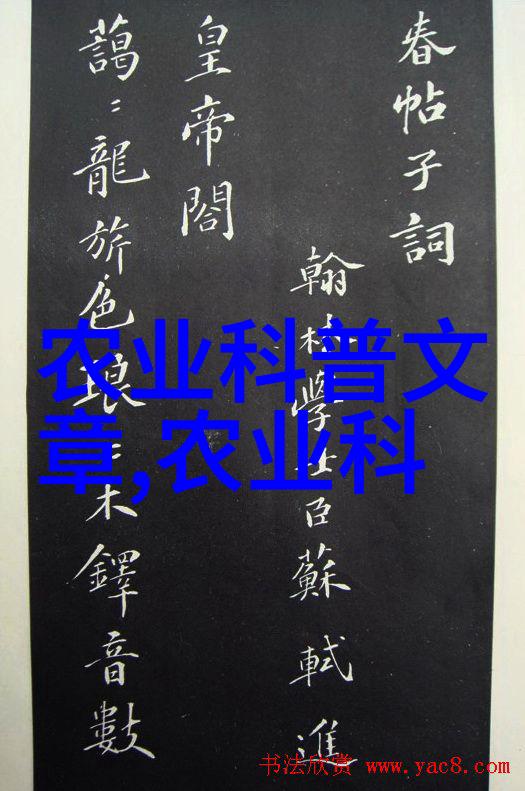 春帖子詞
翰林學士臣蘇軾進
皇帝閣
藹〻龍旂色琅〻木鐸音數
农业科普文
章,农业科
书法欣赏 www.yac8.com